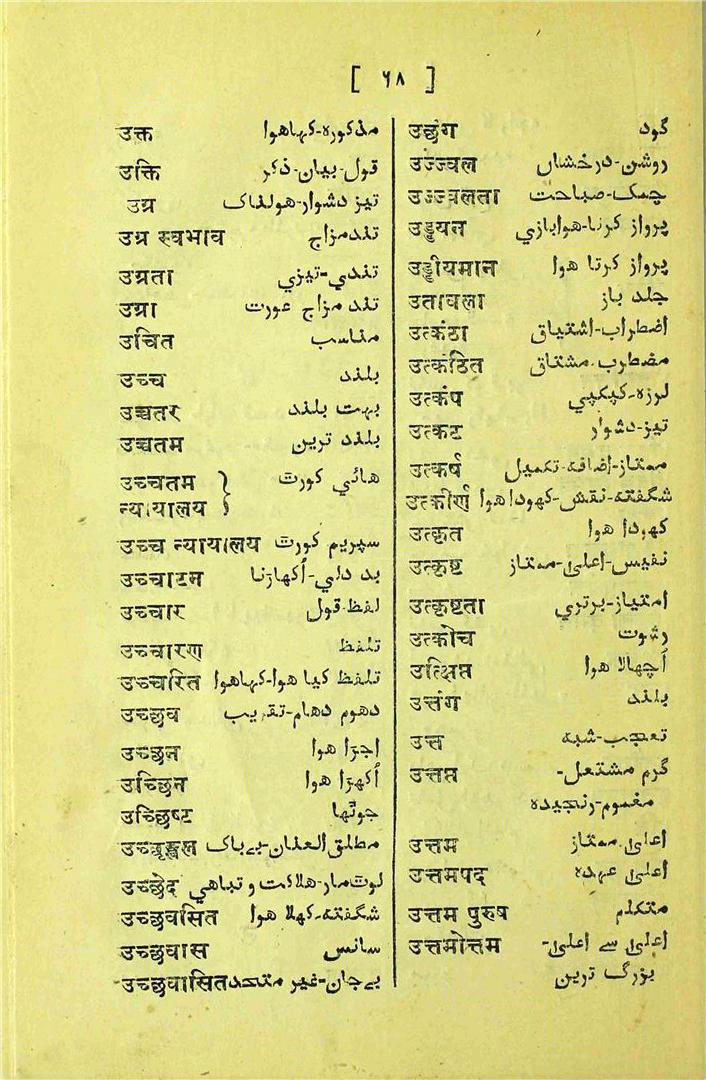 [ ۶۸ ]
उक्त مذکورہ-کہاهوا
उक्ति قول-بیان-ذکر
उग्र تیز دشوار-هولناک
उग्र स्वभाव تندمزاج
उग्रता تندي-تیزي
उग्रा تند مزاج عورت
उचित مناسب
उच्च بلند
उच्चतर بہت بلند
उच्चतम بلند ترین
उच्चतम هائي کورٹ
न्यायालय }
उच्च न्यायालय سپریم کورٹ
उच्चाटन بد دلي-اُکھاڑنا
उच्चार لفظ-قول
उच्चारण تلفظ
उच्चरित تلفظ کیا هوا-کہاهوا
उच्छव دهوم دهام-تقریب
उच्छन اجڑا هوا
उच्छिन اُکھڑا هوا
उच्छिष्ट جوٹھا
उच्छृङ्खल مطلق العنان-بےباک
उच्छेद لوٹ مار-هلاکت و تباهي
उच्छवसित شگفتہ-کھلا هوا
उच्छवास سانس
उच्छवासित بےجان-غیر متحد
उछंग گود
उज्ज्वल روشن-درخشاں
उज्ज्वलता چمک-صباحت
उड्डयन پرواز کرنا-هوابازي
उड्डीयमान پرواز کرتا هوا
उतावला جلد باز
उत्कंठा اضطراب-اشتیاق
उत्कंठित مضطرب-مشتاق
उत्कंप لرزہ-کپکپي
उत्कट تیز-دشوار
उत्कर्ष ممتاز-اضافہ-تکمیل
उत्कीर्ण شگفتہ-نقش-کھودا هوا
उत्कृत کھودا هوا
उत्कृष्ट نفیس-اعلیٰ-ممتاز
उत्कृष्टता امتیاز-برتري
उत्कोच رشوت
उत्क्षिप्त اُچھالا هوا
उत्तंग بلند
उत्त تعجب-شبہ
उत्तप्त گرم مشتعل-
مغموم-رنجیدہ
उत्तम اعلیٰ-ممتاز
उत्तमपद اعلیٰ عہدہ
उत्तम पुरुष متکلم
उत्तमोत्तम اعلیٰ سے اعلیٰ-
بزرگ ترین